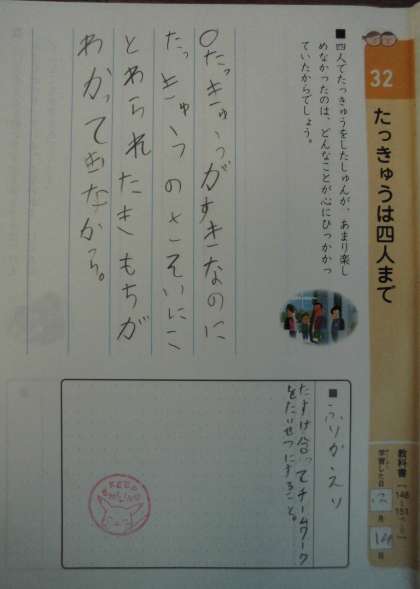 32
たっきゅうは四人まで
■四人でたっきゅうをしたしゅんが、あまり楽し
めなかったのは、どんなことが心にひっかかっ
ていたからでしょう。
○たっきゅうがすきなのに
たっきゅうのさそいにこ
とわられたきもちが
わかってきたから。
教科書
148
151
ページ
学習した日
12
月
14
日
■ふりかえり
たすけ合ってチームワーク
をたいせつにすること。